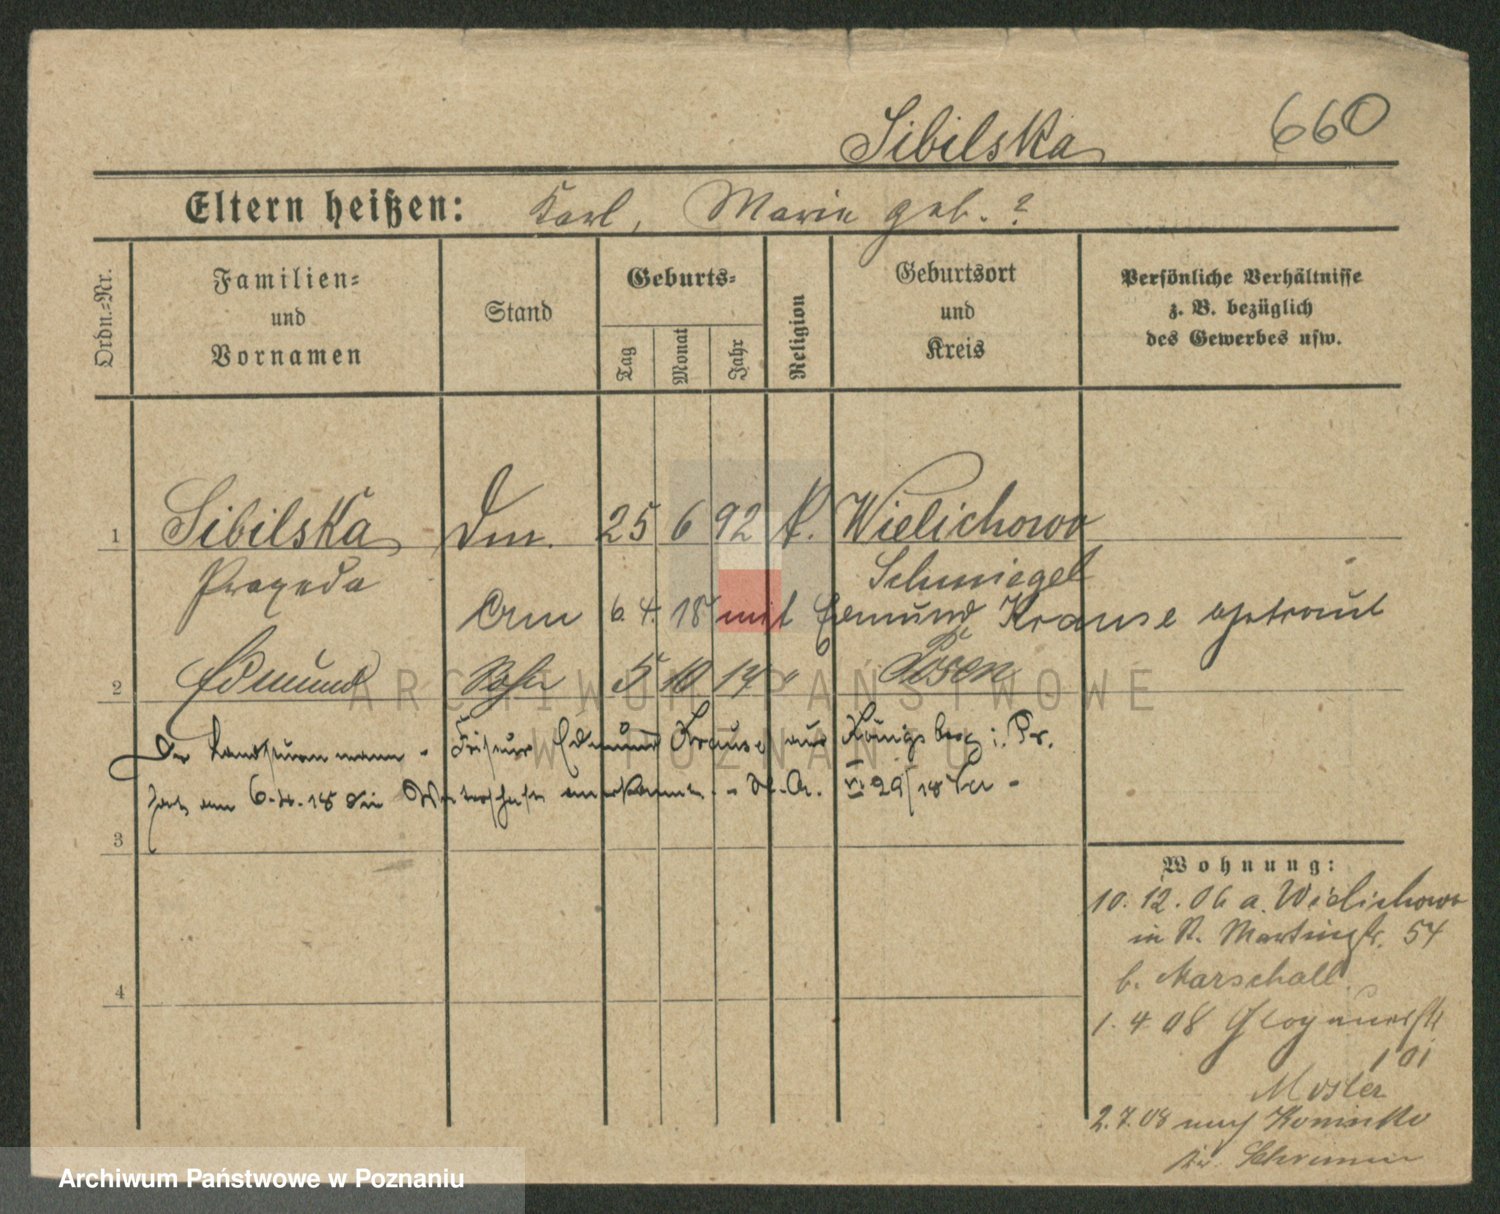 Sibilska 660
Eltern heißen: Karl, Marie geb. ?
Ordn.-Nr.
Familien-
und
Vornamen
Stand
Geburts-
Tag
Monat
Jahr
Religion
Geburtsort
und
Kreis
Persönliche Verhältnisse
z. B. bezüglich
des Gewerbes usw.
1 Sibilska 25 6 92 K. Wielichowo
Praxeda Schmiegel
am 6.4.18 mit Edmund Krause getraut
2 Edmund Sohn 5 10 17 " Posen
Der Landsturmmann - Friseur Edmund Krause aus Königsberg i. Pr.
hat am 6.4.18 die Vaterschaft anerkannt. - St.A. VI 29/18
3
4
Wohnung:
10.12.06 a. Wielichowo
in St. Martinstr. 54
b. Marschall.
1.4.08 Glogauerstr
101
Mosler
2.7.08 nach
Kr. Schrimm
ARCHIWUM PAŃSTWOWE
W POZNANIU
Archiwum Państwowe w Poznaniu